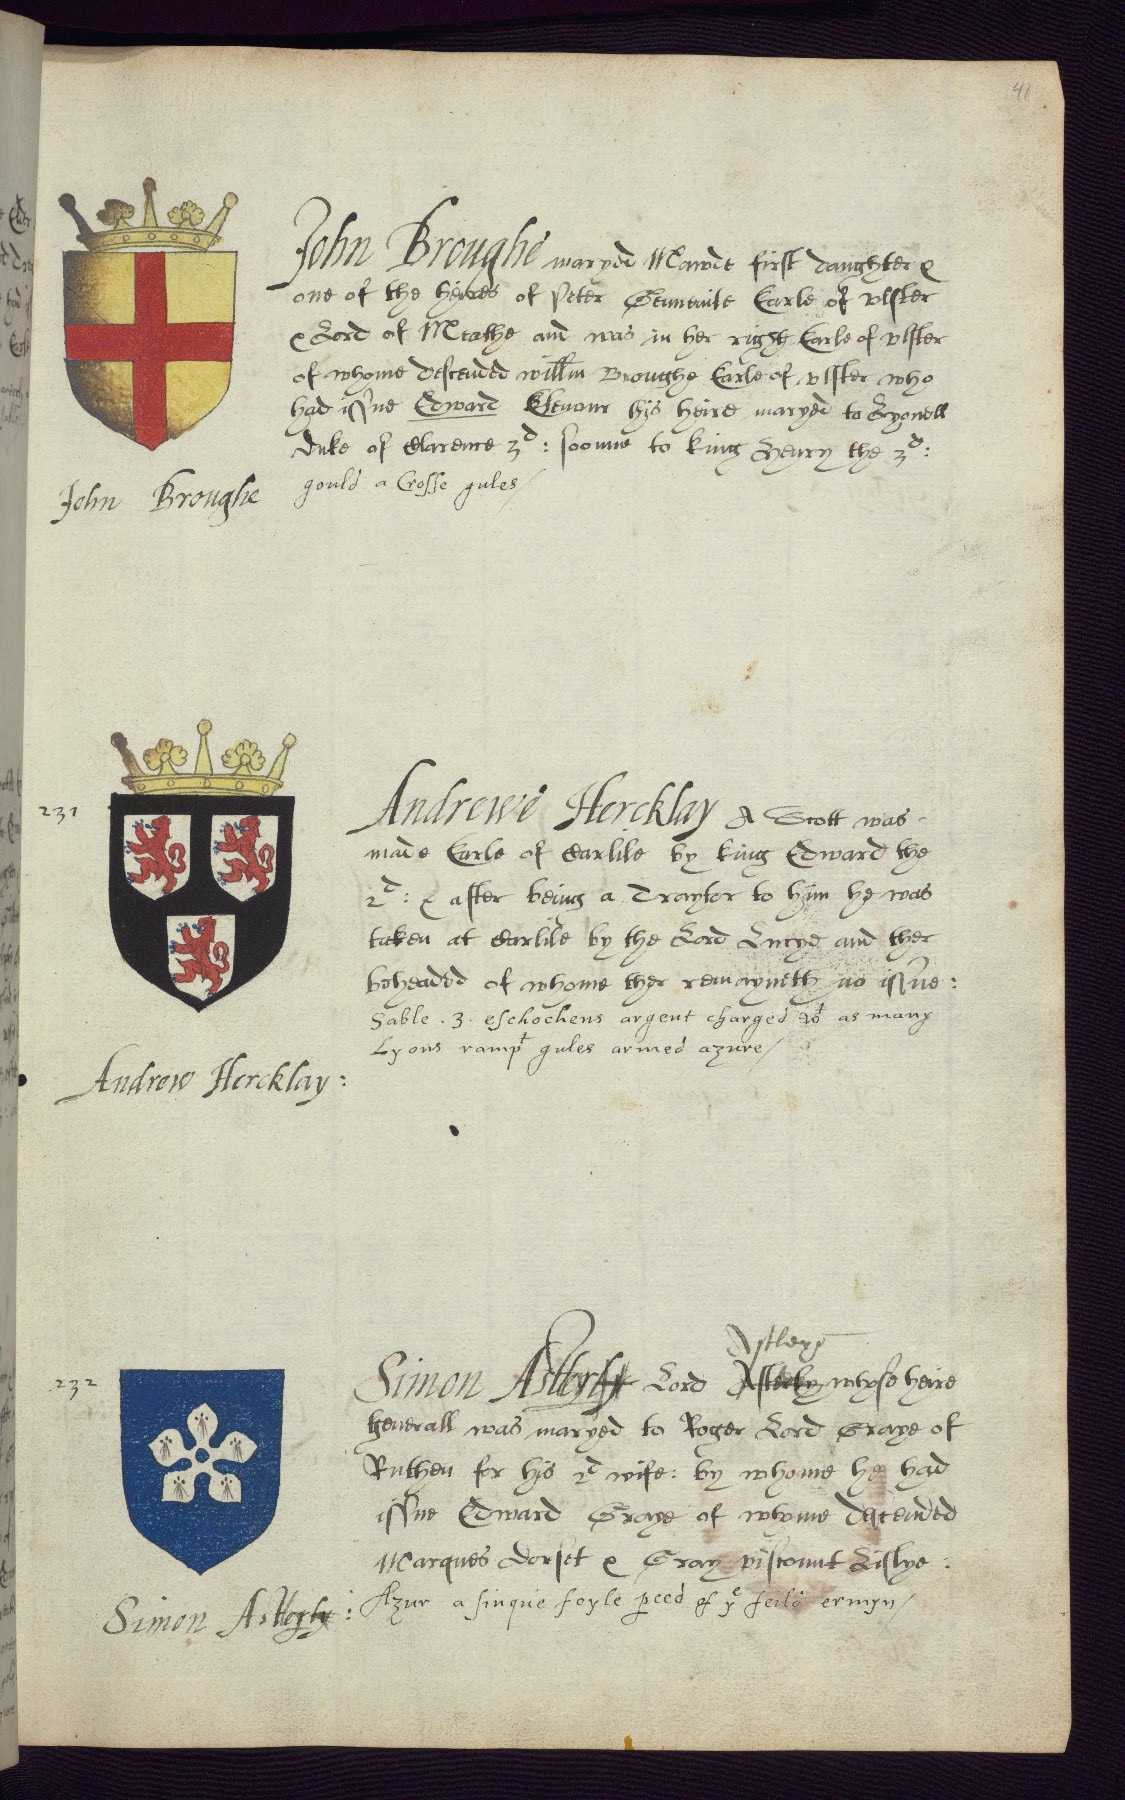 41
John Broughe maryed Mawde first daughter &
one of the heires of Peter Genneuile Earle of vlster
& Lord of Meathe and was in her right Earle of vlster
of whome descended willm Broughe Earle of vlster who
had issue Edward Elenour his heire maryed to Lyonell
Duke of Clarence 3d: soonne to king Henry the 3d:
gould a Crosse gules/
John Broughe
231
Andrewe Hercklay A Scott was
made Earle of Carlile by king Edward the
2d: & after being a Traytor to him he was
taken at Carlile by the Lord Lucye and ther
beheaded of whome ther remayneth no issue:
Sable .3. eschochens argent charged wt as many
Lyons rampt gules armed azure/
Andrew Hercklay:
232
Astleye
Simon Lord whose heire
generall was maryed to Roger Lord Graye of
Ruthen for his 2d wife: by whome he had
issue Edward Graye of whome descended
Marques Dorset & Gray viscount Lislye:
Azur a sinque foyle peed of ye feild ermyn/
Simon :